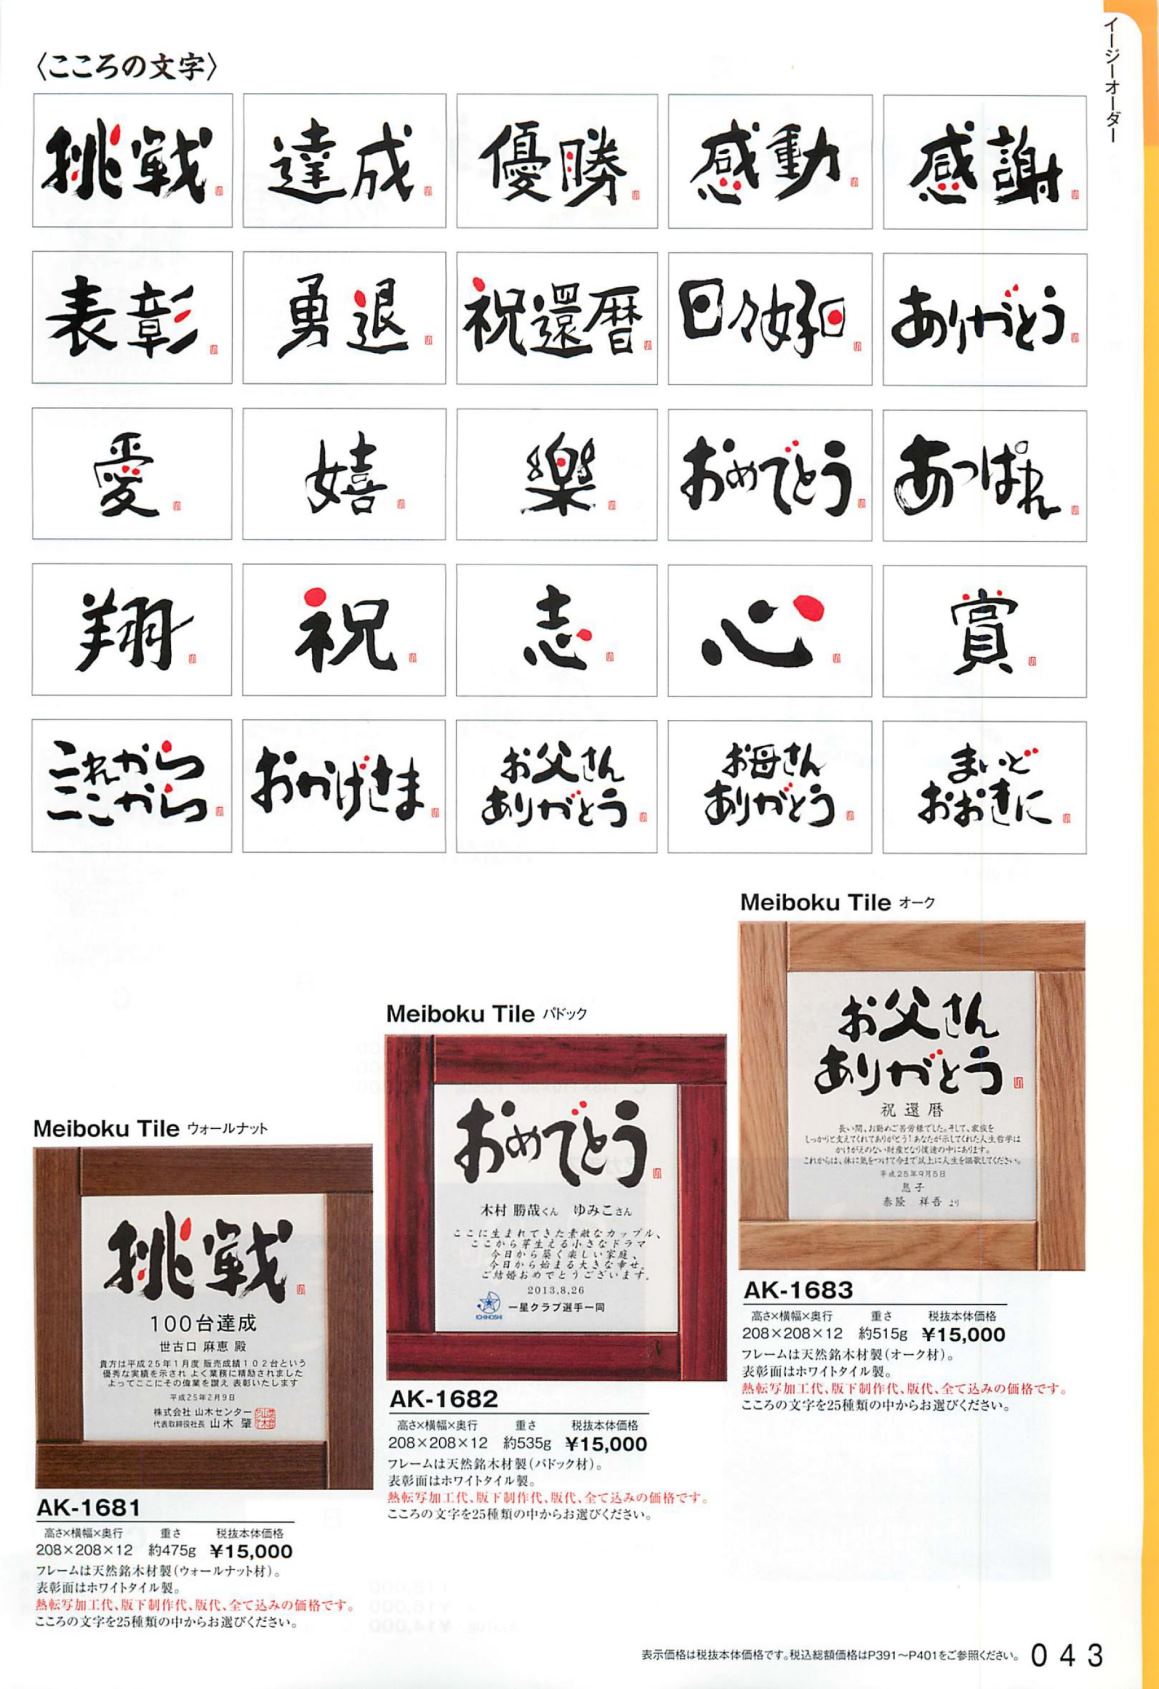 イージーオーダー
〈こころの文字〉
挑戦
達成
優勝
感動
感謝
表彰
勇退
祝還暦
日々好日
ありがとう
愛
嬉
樂
おめでとう
あっぱれ
翔
祝
志
心
賞
これから
ここから
おかげさま
お父さん
ありがとう
お母さん
ありがとう
まいど
おおきに
Meiboku Tile ウォールナット
挑戦
100台達成
世古口 麻恵 殿
貴方は平成25年1月度 販売成績102台という
優秀な実績を示され よく業務に精励されました
よってここにその偉業を讃え 表彰いたします
平成25年2月9日
株式会社 山木センター
代表取締役社長 山木 肇
AK-1681
高さ×横幅×奥行 重さ 税抜本体価格
208×208×12 約475g ¥15,000
フレームは天然銘木材製(ウォールナット材)。
表彰面はホワイトタイル製。
熱転写加工代、版下制作代、版代、全て込みの価格です。
こころの文字を25種類の中からお選びください。
Meiboku Tile パドック
おめでとう
木村 勝哉くん ゆみこさん
ここに生まれてきた素敵なカップル、
ここから芽生える小さなドラマ
今日から築く楽しい家庭、
今日から始まる大きな幸せ。
ご結婚おめでとうございます。
2013.8.26
ICHIHOSHI
一星クラブ選手一同
AK-1682
高さ×横幅×奥行 重さ 税抜本体価格
208×208×12 約535g ¥15,000
フレームは天然銘木材製(パドック材)。
表彰面はホワイトタイル製。
熱転写加工代、版下制作代、版代、全て込みの価格です。
こころの文字を25種類の中からお選びください。
Meiboku Tile オーク
お父さん
ありがとう
祝還暦
長い間、お勤めご苦労様でした。そして、家族を
しっかりと支えてくれてありがとう!あなたが示してくれた人生哲学は
かけがえのない財産となり僕達の中にあります。
これからは、体に気をつけて今まで以上に人生を謳歌してください。
平成25年9月5日
息子
泰隆 祥吾 より
AK-1683
高さ×横幅×奥行 重さ 税抜本体価格
208×208×12 約515g ¥15,000
フレームは天然銘木材製(オーク材)。
表彰面はホワイトタイル製。
熱転写加工代、版下制作代、版代、全て込みの価格です。
こころの文字を25種類の中からお選びください。
表示価格は税抜本体価格です。税込総額価格はP391〜P401をご参照ください。 043